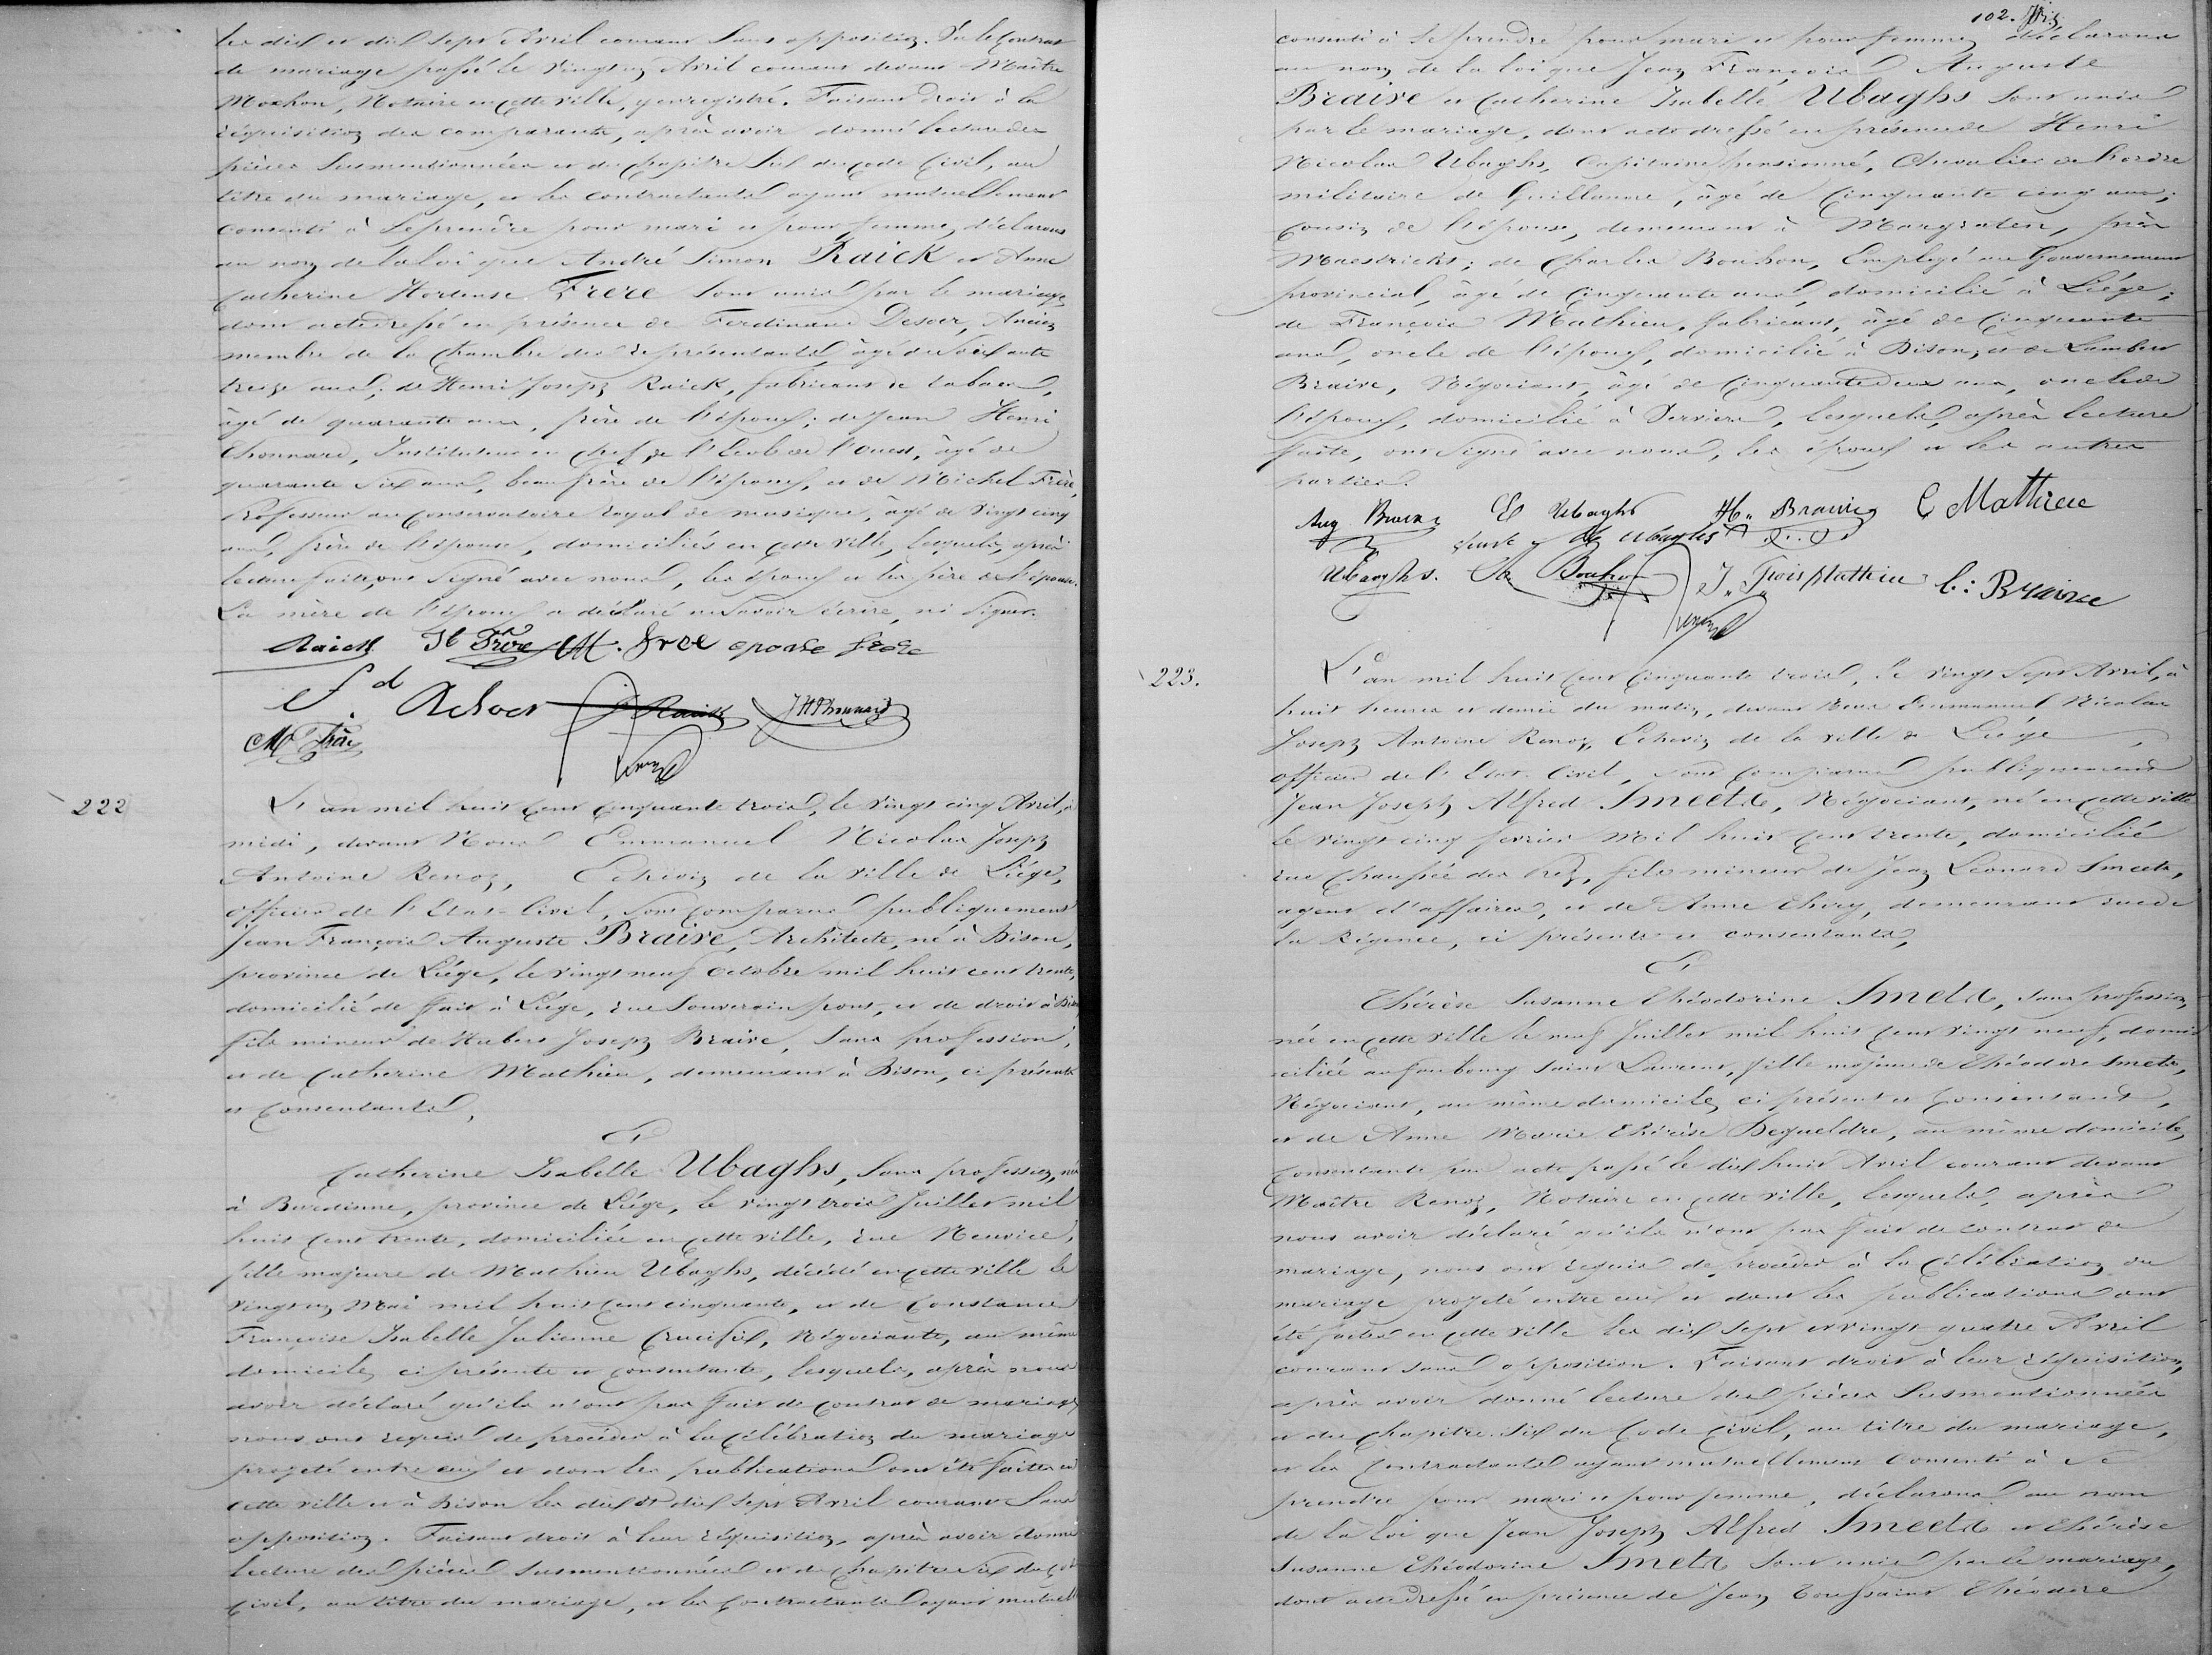 les dix et dix sept Avril courant sans opposition. Vu le Contrat
de mariage passé le vingt un Avril courant devant Maître
Moxhon, Notaire en cette ville, y enregistré. Faisant droit à la
réquisition des comparants, après avoir donné lecture des
pièces susmentionnées et du chapitre six du code Civil, au
titre du mariage, et les contractants ayant mutuellement
consenti à se prendre pour mari et pour femme, déclarons
au nom de la loi que André Simon Raick et Anne
Catherine Hortense Frere sont unis par le mariage,
dont acte dressé en présence de Ferdinand Desoer, Ancien
membre de la Chambre des représentants, âgé de soixante
treize ans; de Henri Joseph Raick, fabricant de tabacs,
âgé de quarante ans, frère de l'époux; de Jean Henri
Thonnard, Instituteur en chef de l'Ecole de l'Ouest, âgé de
quarante six ans, beau frère de l'époux, et de Michel Frère,
Professeur au Conservatoire royal de musique, âgé de vingt cinq
ans, frère de l'épouse, domiciliés en cette ville, lesquels, après
lecture faite, ont signé avec nous, les époux et les père de l'épouse.
La mère de l'époux a déclaré ne savoir écrire, ni signer.
Raick H Frère M. frere epouse frere
Fd Desoer H Raick JHThonnard
M Frère
222
L'an mil huit cent cinquante trois, le vingt cinq Avril, à
midi, devant Nous Emmanuel Nicolas Joseph
Antoine Renoz, Echevin de la ville de Liége,
officier de l'Etat-Civil, sont comparus publiquement
Jean François Auguste Braive, Architecte, né à Dison,
province de Liége, le vingt neuf octobre mil huit cent trente,
domicilié de fait à Liége, rue Souverain pont, et de droit à Dison
fils mineur de Hubert Joseph Braive, sans profession,
et de Catherine Mathieu, demeurant à Dison, ci présents
et consentants,
Et
Catherine Isabelle Ubaghs, sans profession, née
à Burdinne, province de Liége, le vingt trois Juillet mil
huit cent trente, domiciliée en cette ville, rue Neuvice,
fille majeure de Mathieu Ubaghs, décédé en cette ville le
vingt un Mai mil huit cent cinquante, et de Constance
Françoise Isabelle Julienne Crucifix, Négociante, au même
domicile, ci présente et consentante, lesquels, après nous
avoir déclaré qu'ils n'ont pas fait de contrat de mariage,
nous ont requis de procéder à la célébration du mariage
projeté entre eux et dont les publications ont été faites en
cette ville et à Dison les dix et dix sept Avril courant sans
opposition. Faisant droit à leur réquisition, après avoir donné
lecture des pièces susmentionnées et du chapitre six du code
civil, au titre du mariage, et les contractants ayant mutuell
102. 
consenti à se prendre pour mari et pour femme, déclarons
au nom de la loi que Jean François Auguste
Braive et Catherine Isabelle Ubaghs sont unis
par le mariage, dont acte dressé en présence de Henri
Nicolas Ubaghs, Capitaine pensionné, Chevalier de l'ordre
militaire de Guillaume, âgé de Cinquante cinq ans;
cousin de l'épouse, demeurant à Margraten, près
Maestricht; de Charles Bouhon, Employé au Gouvernement
provincial, âgé de cinquante ans, domicilié à Liége;
de François Mathieu, fabricant, âgé de cinquante
ans, oncle de l'époux, domicilié à Dison, et de Lambert
Braive, Négociant, âgé de Cinquante deux ans, oncle de
l'époux, domicilié à Verviers, lesquels, après lecture
faite, ont signé avec nous, les époux et les autres
parties.
Aug Braive C Ubaghs H. Braive C Mathieu
veuve Ubaghs
Ubaghs. Ch Bouhon J. Fois Mathieu L: Braive
223.
L'an mil huit cent cinquante trois, le vingt sept Avril, à
huit heures et demie du matin, devant Nous Emmanuel Nicolas
Joseph Antoine Renoz, Echevin de la ville de Liége,
officier de l'Etat-Civil, sont comparus publiquement
Jean Joseph Alfred Smeets, Négociant, né en cette ville
le vingt cinq février mil huit cent trente, domicilié
rue Chaussée des Prés, fils mineur de Jean Léonard Smeets,
agent d'affaires, et de Anne Thiry, demeurant rue de
la Régence, ci présents et consentants,
Et
Thérèse Susanne Théodorine Smets, sans profession,
née en cette ville le neuf Juillet mil huit cent vingt neuf, domi
ciliée au faubourg Saint Laurent, fille majeure de Théodore Smets,
Négociant, au même domicile, ci présent et consentant,
et de Anne Marie Thérèse Dequeldre, au même domicile,
consentante par acte passé le dix huit Avril courant devant
Maître Renoz, Notaire en cette ville, lesquels, après
nous avoir déclaré qu'ils n'ont pas fait de contrat de
mariage, nous ont requis de procéder à la célébration du
mariage projeté entre eux et dont les publications ont
été faites en cette ville les dix sept et vingt quatre Avril
courant sans opposition. Faisant droit à leur réquisition,
après avoir donné lecture des pièces susmentionnées
et du chapitre six du Code Civil, au titre du mariage,
et les contractants ayant mutuellement consenti à se
prendre pour mari et pour femme, déclarons au nom
de la loi que Jean Joseph Alfred Smeets et Thérèse
Susanne Théodorine Smets sont unis par le mariage,
dont acte dressé en présence de Jean Toussaint Théodore